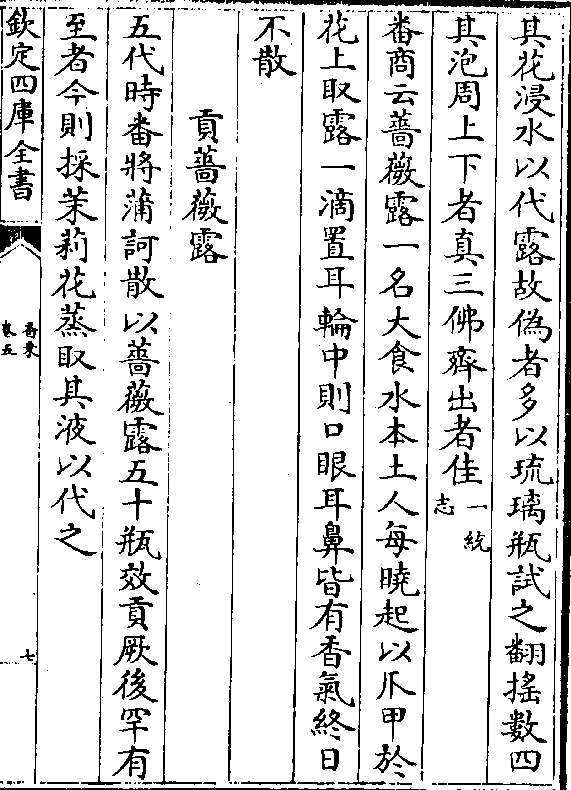 其花浸水以代露故偽者多以琉璃瓶試之翻搖數四
其泡周上下者真三佛齊出者佳一統志
番商云薔薇露一名大食水本土人每曉起以爪甲於
花上取露一滴置耳輪中則口眼耳鼻皆有香氣終日
不散
貢薔薇露
五代時番將蒲訶散以薔薇露五十瓶效貢厥後罕有
至者今則採茉莉花蒸取其液以代之
欽定四庫全書
香乘
卷五
七